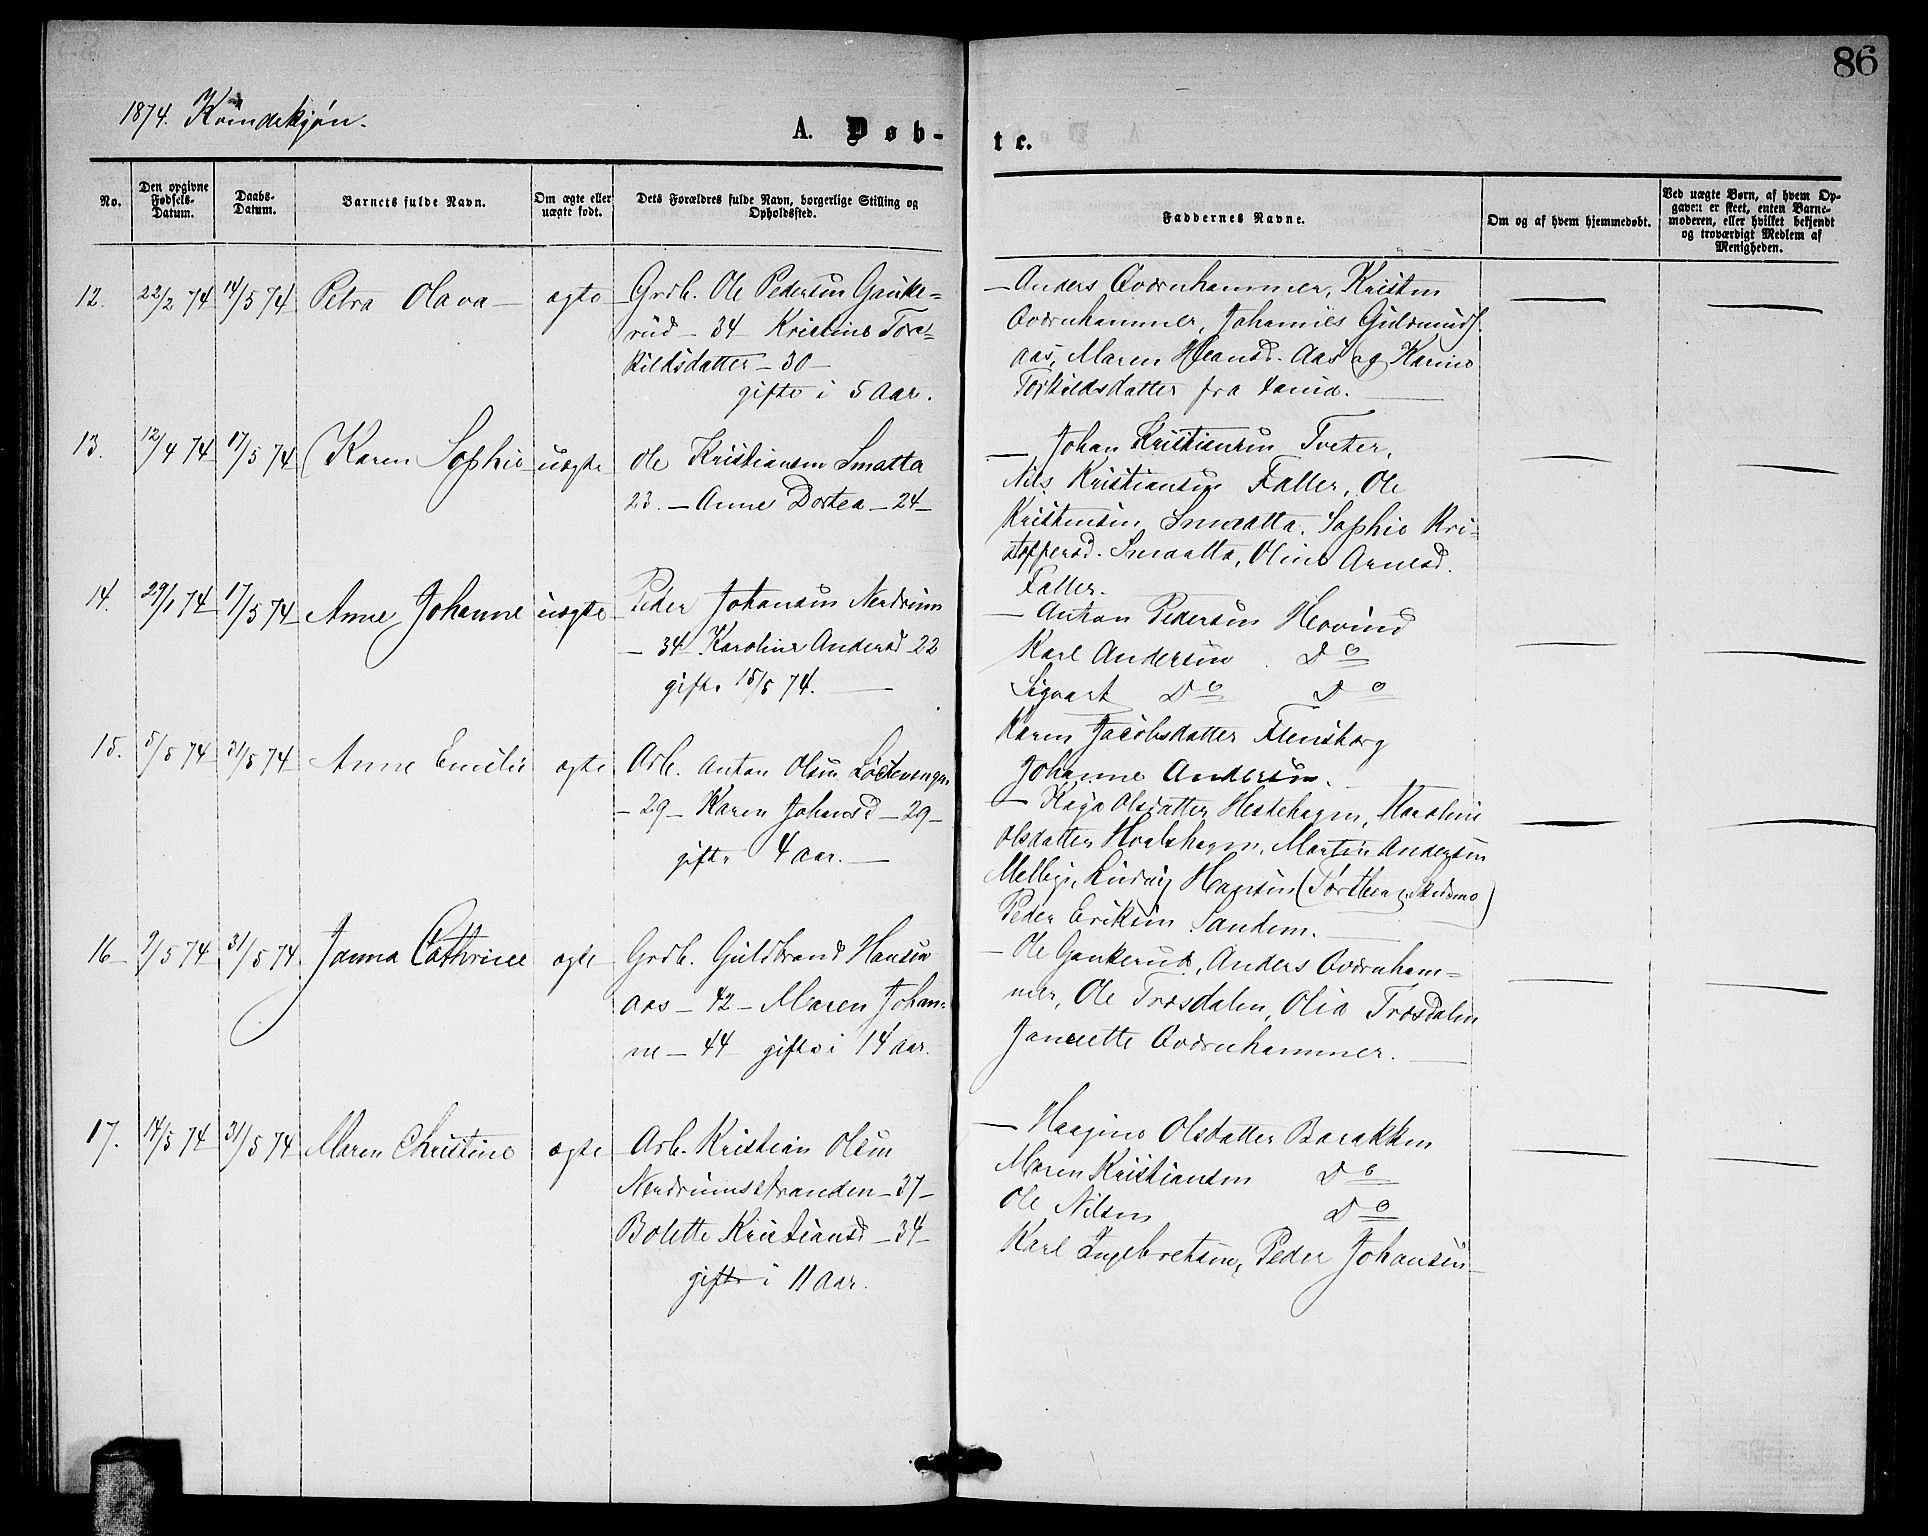 86
1874. Kvindekjøn.
A. Døb-
te.
No.
Den opgivne Fødsels-Datum.
Daabs-Datum.
Barnets fulde Navn.
Om ægte eller uægte født.
Dets Forældres fulde Navn, borgerlige Stilling og Opholdssted.
Faddernes Navne.
Om og af hvem hjemmedøbt.
Ved uægte Børn, af hvem Op-
gaven er skeet, enten Barne-
moderen, eller hvilket bekjendt
og troværdigt Medlem af
Menigheden.
12. 22/2 74 14/5 74 Petra Olava — ægte
Grdb. Ole Pedersen Gauke=
rud — 34 Kristine Tor=
kildsdatter — 30 —
gifte i 5 Aar.
— Anders Qværnhammer, Kristen
Qværnhammer, Johannes
aas, Maren Hansd. Aas og Karine
Torkildsdatter fra
13. 12/4 74 17/5 74 Karen Sophie uægte
Ole Kristiansen Smatta
23. — Anne Dortea — 24 —
— Johan Kristiansen Tveter,
Nils Kristiansen Faller, Ole
Kristensen Smaatta, Sophie Kri-
stoffersd. Smaatta, Oline Arnesd.
Faller.
14. 29/1 74 17/5 74 Anne Johanne uægte
Peder Johansen Nerdrum
— 34 Karoline Andersd 22
gifte 15/5 74. —
— Anton Pedersen Hovind
Karl Andersen Do
Sigvart Do Do
Karen Jacobsdatter Flensborg
Johanne Andersen.
15. 5/5 74 31/5 74 Anne Emilie ægte
Arb. Anton Olsen
— 29 — Karen Johansd — 29 —
gifte 4 aar. —
— Kaja Olsdatter Hestehagen, Karoline
Olsdatter Hvalshagen, Martin Andersen
Melbye, Ludvig Hansen
Peder Eriksen Sandem.
16 — 9/5 74 31/5 74 Janna Cathrine ægte
Grdb. Guldbrand Hansen
Aas — 42 — Maren Johan-
ne — 44 gifte i 14 aar.
— Ole Gaukerud, Anders Qværnham-
mer, Ole Trosdalen, Olia Trosdalen
Janette Qværnhammer. —
17. 14/5 74 31/5 74 Maren Christine ægte
Arb. Kristian Olsen
Nerdrumsstranden — 37 —
Bolette Kristiansd — 34 —
gifte i 11 Aar.
— Haagine Olsdatter Barakken
Maren Kristiansen Do
Ole Nilsen Do
Karl Ingebretsen, Peder Johansen